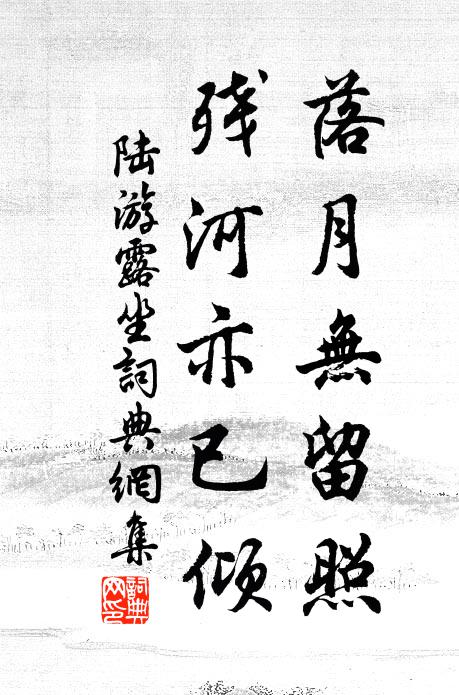 落月無留照
残河亦已傾
陆游露坐詞典網集
詞典网印